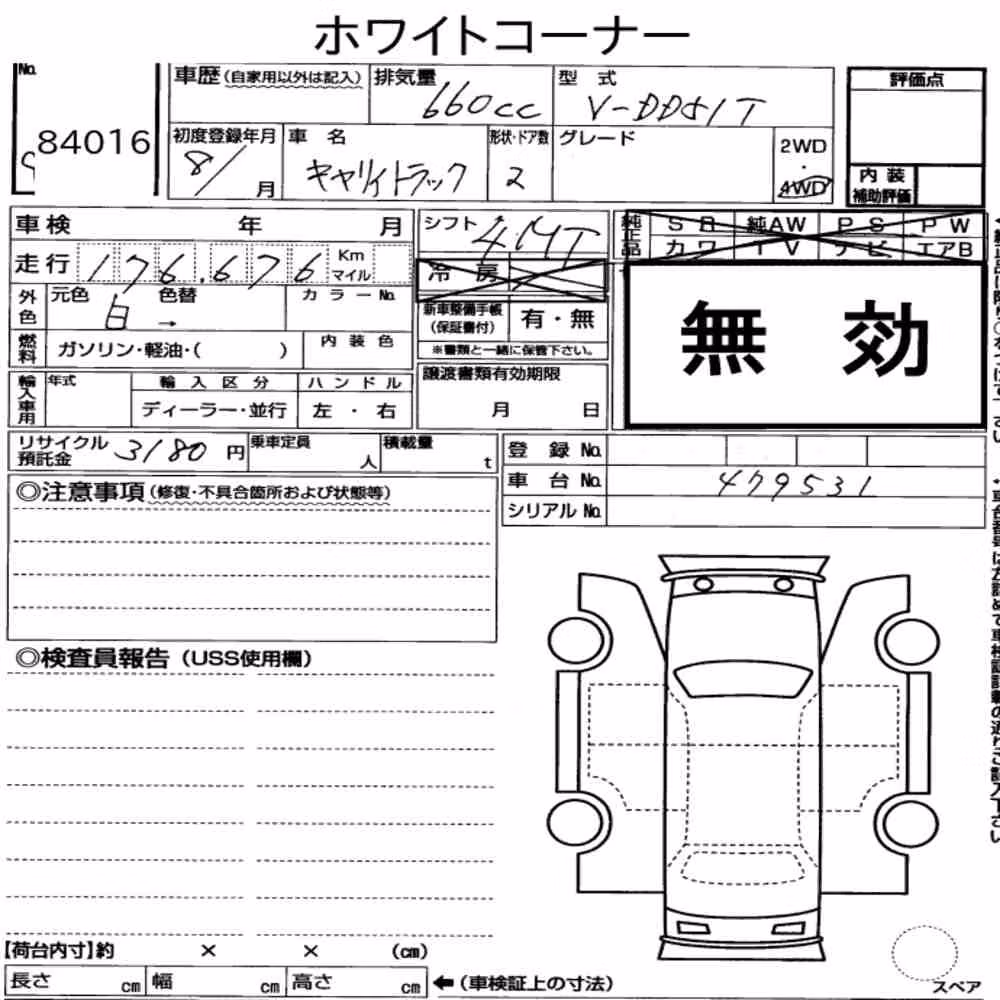 ホワイトコーナー
No.
84016
車歴(自家用以外は記入)
排気量
660cc
型 式
V-DD51T
初度登録年月
8/ 月
車 名
キャリイトラック
形状・ドア数
2
グレード
2WD
・
4WD
評価点
内 装
補助評価
車検 年 月
シフト 4.MT
純正品
S R 純AW P S P W
カワ T V ナビ エアB
走行 176.676 Km マイル
冷 房
外色
元色 白 → 色替
カラーNo.
新車整備手帳
(保証書付)
有・無
※書類と一緒に保管下さい。
無 効
燃料
ガソリン・軽油・( )
内 装 色
輸入車用
年式
輸 入 区 分
ハ ン ド ル
ディーラー・並行
左 ・ 右
譲渡書類有効期限
月 日
リサイクル
預託金
3180 円
乗車定員
人
積載量
t
登 録 No.
車 台 No.
479531
シリアル No.
◎注意事項(修復・不具合箇所および状態等)
◎検査員報告(USS使用欄)
【荷台内寸】約 × × (cm)
長さ cm 幅 cm 高さ cm
←(車検証上の寸法)
スペア